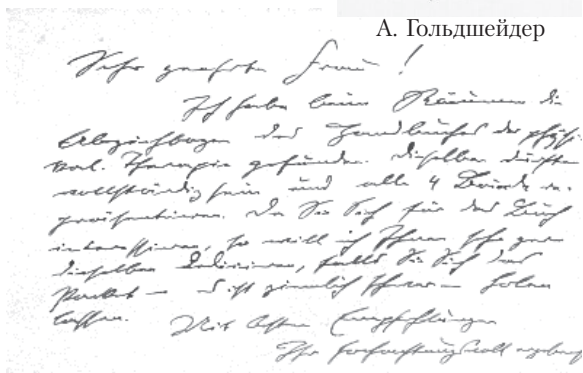 А. Гольдшейдер
Sehr geehrte Frau!
Ich habe beim Räumen die
Abziehbogen des Handbuches der physi-
kal. Therapie gefunden. Dieselben dürften
vollständig sein und alle 4 Bände re-
präsentieren. Da Sie Sich für das Buch
interessieren, so will ich Ihnen sehr gern
dieselben dediciren, falls Sie Sich das
Packet – es ist ziemlich schwer – holen
lassen. Mit besten Empfehlungen
Ihr hochachtungsvoll ergebener